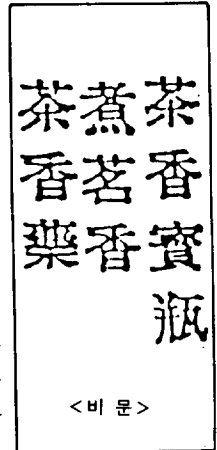 茶香寶瓶
煮茗香
茶香藥
<비 문>